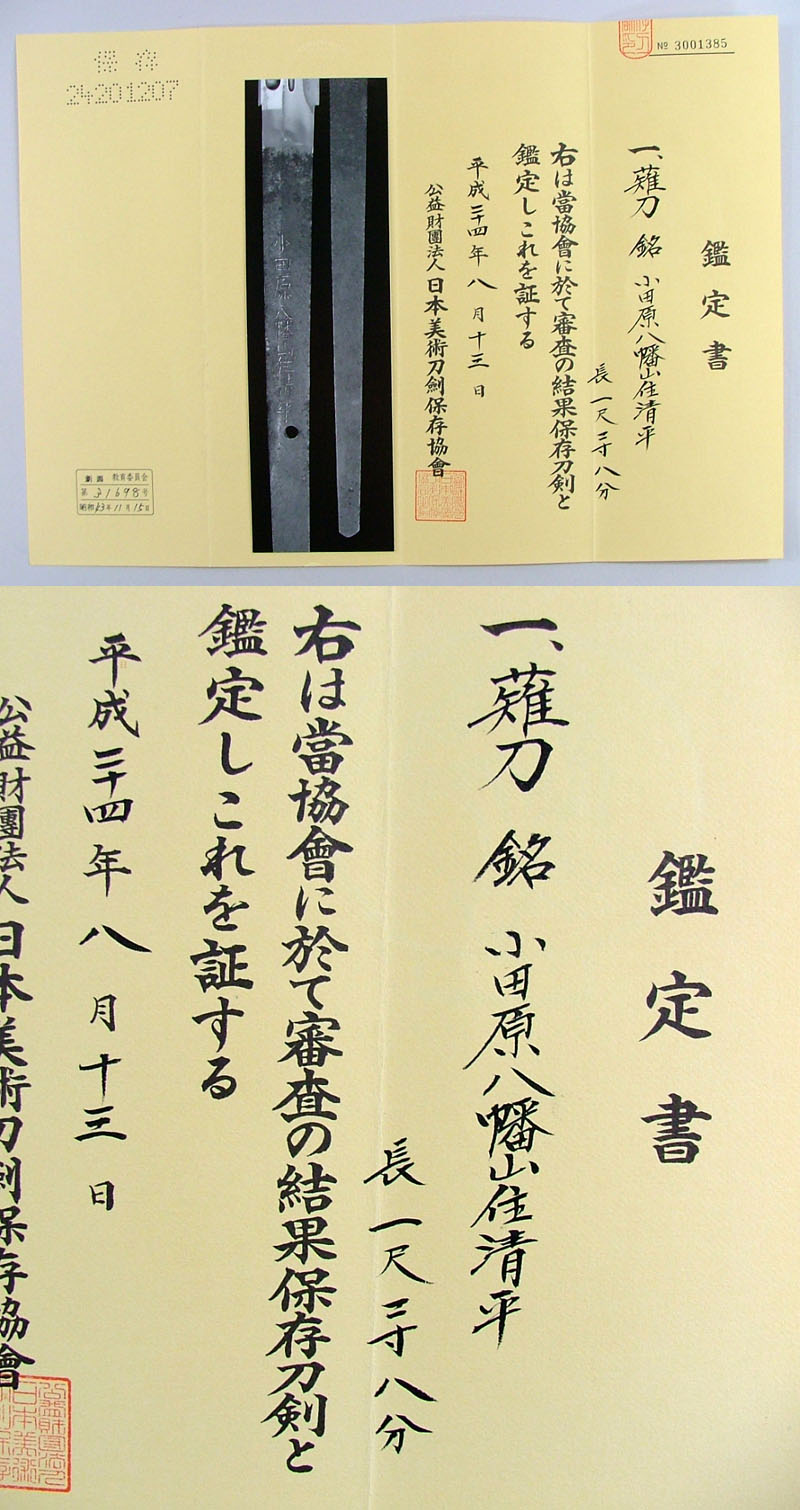 № 3001385
鑑定書
一、薙刀 銘 小田原八幡山住清平
長 一尺二寸八分
右は當協會に於て審査の結果保存刀剣と
鑑定しこれを証する
平成二十四年八月十三日
公益財團法人日本美術刀劍保存協會
保存
24201207
教育委員会
昭和43年11月15日
鑑定書
一、薙刀 銘 小田原八幡山住清平
長 一尺二寸八分
右は當協會に於て審査の結果保存刀剣と
鑑定しこれを証する
平成二十四年八月十三日
公益財團法人日本美術刀劍保存協會